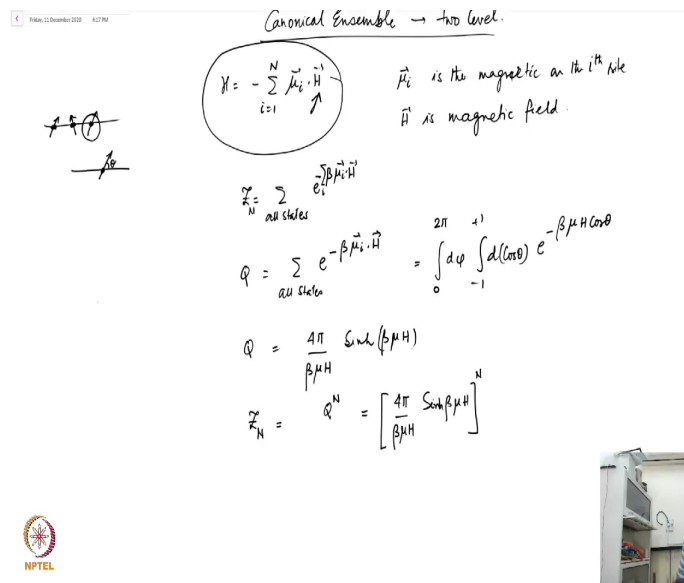 Friday, 11 December 2020 4:17 PM
Canonical Ensemble → two level.
H = - Σ_{i=1}^{N} μ⃗_i · H⃗
μ⃗_i is the magnetic on the i^th site
H⃗ is magnetic field.
θ
Z_N = Σ_{all states} e^{-Σ_i β μ⃗_i · H⃗}
Q = Σ_{all states} e^{-β μ⃗_i · H⃗} = ∫_0^{2π} dφ ∫_{-1}^{+1} d(Cosθ) e^{-βμH Cosθ}
Q = 4π/βμH Sinh (βμH)
Z_N = Q^N = [4π/βμH Sinh βμH]^N
NPTEL